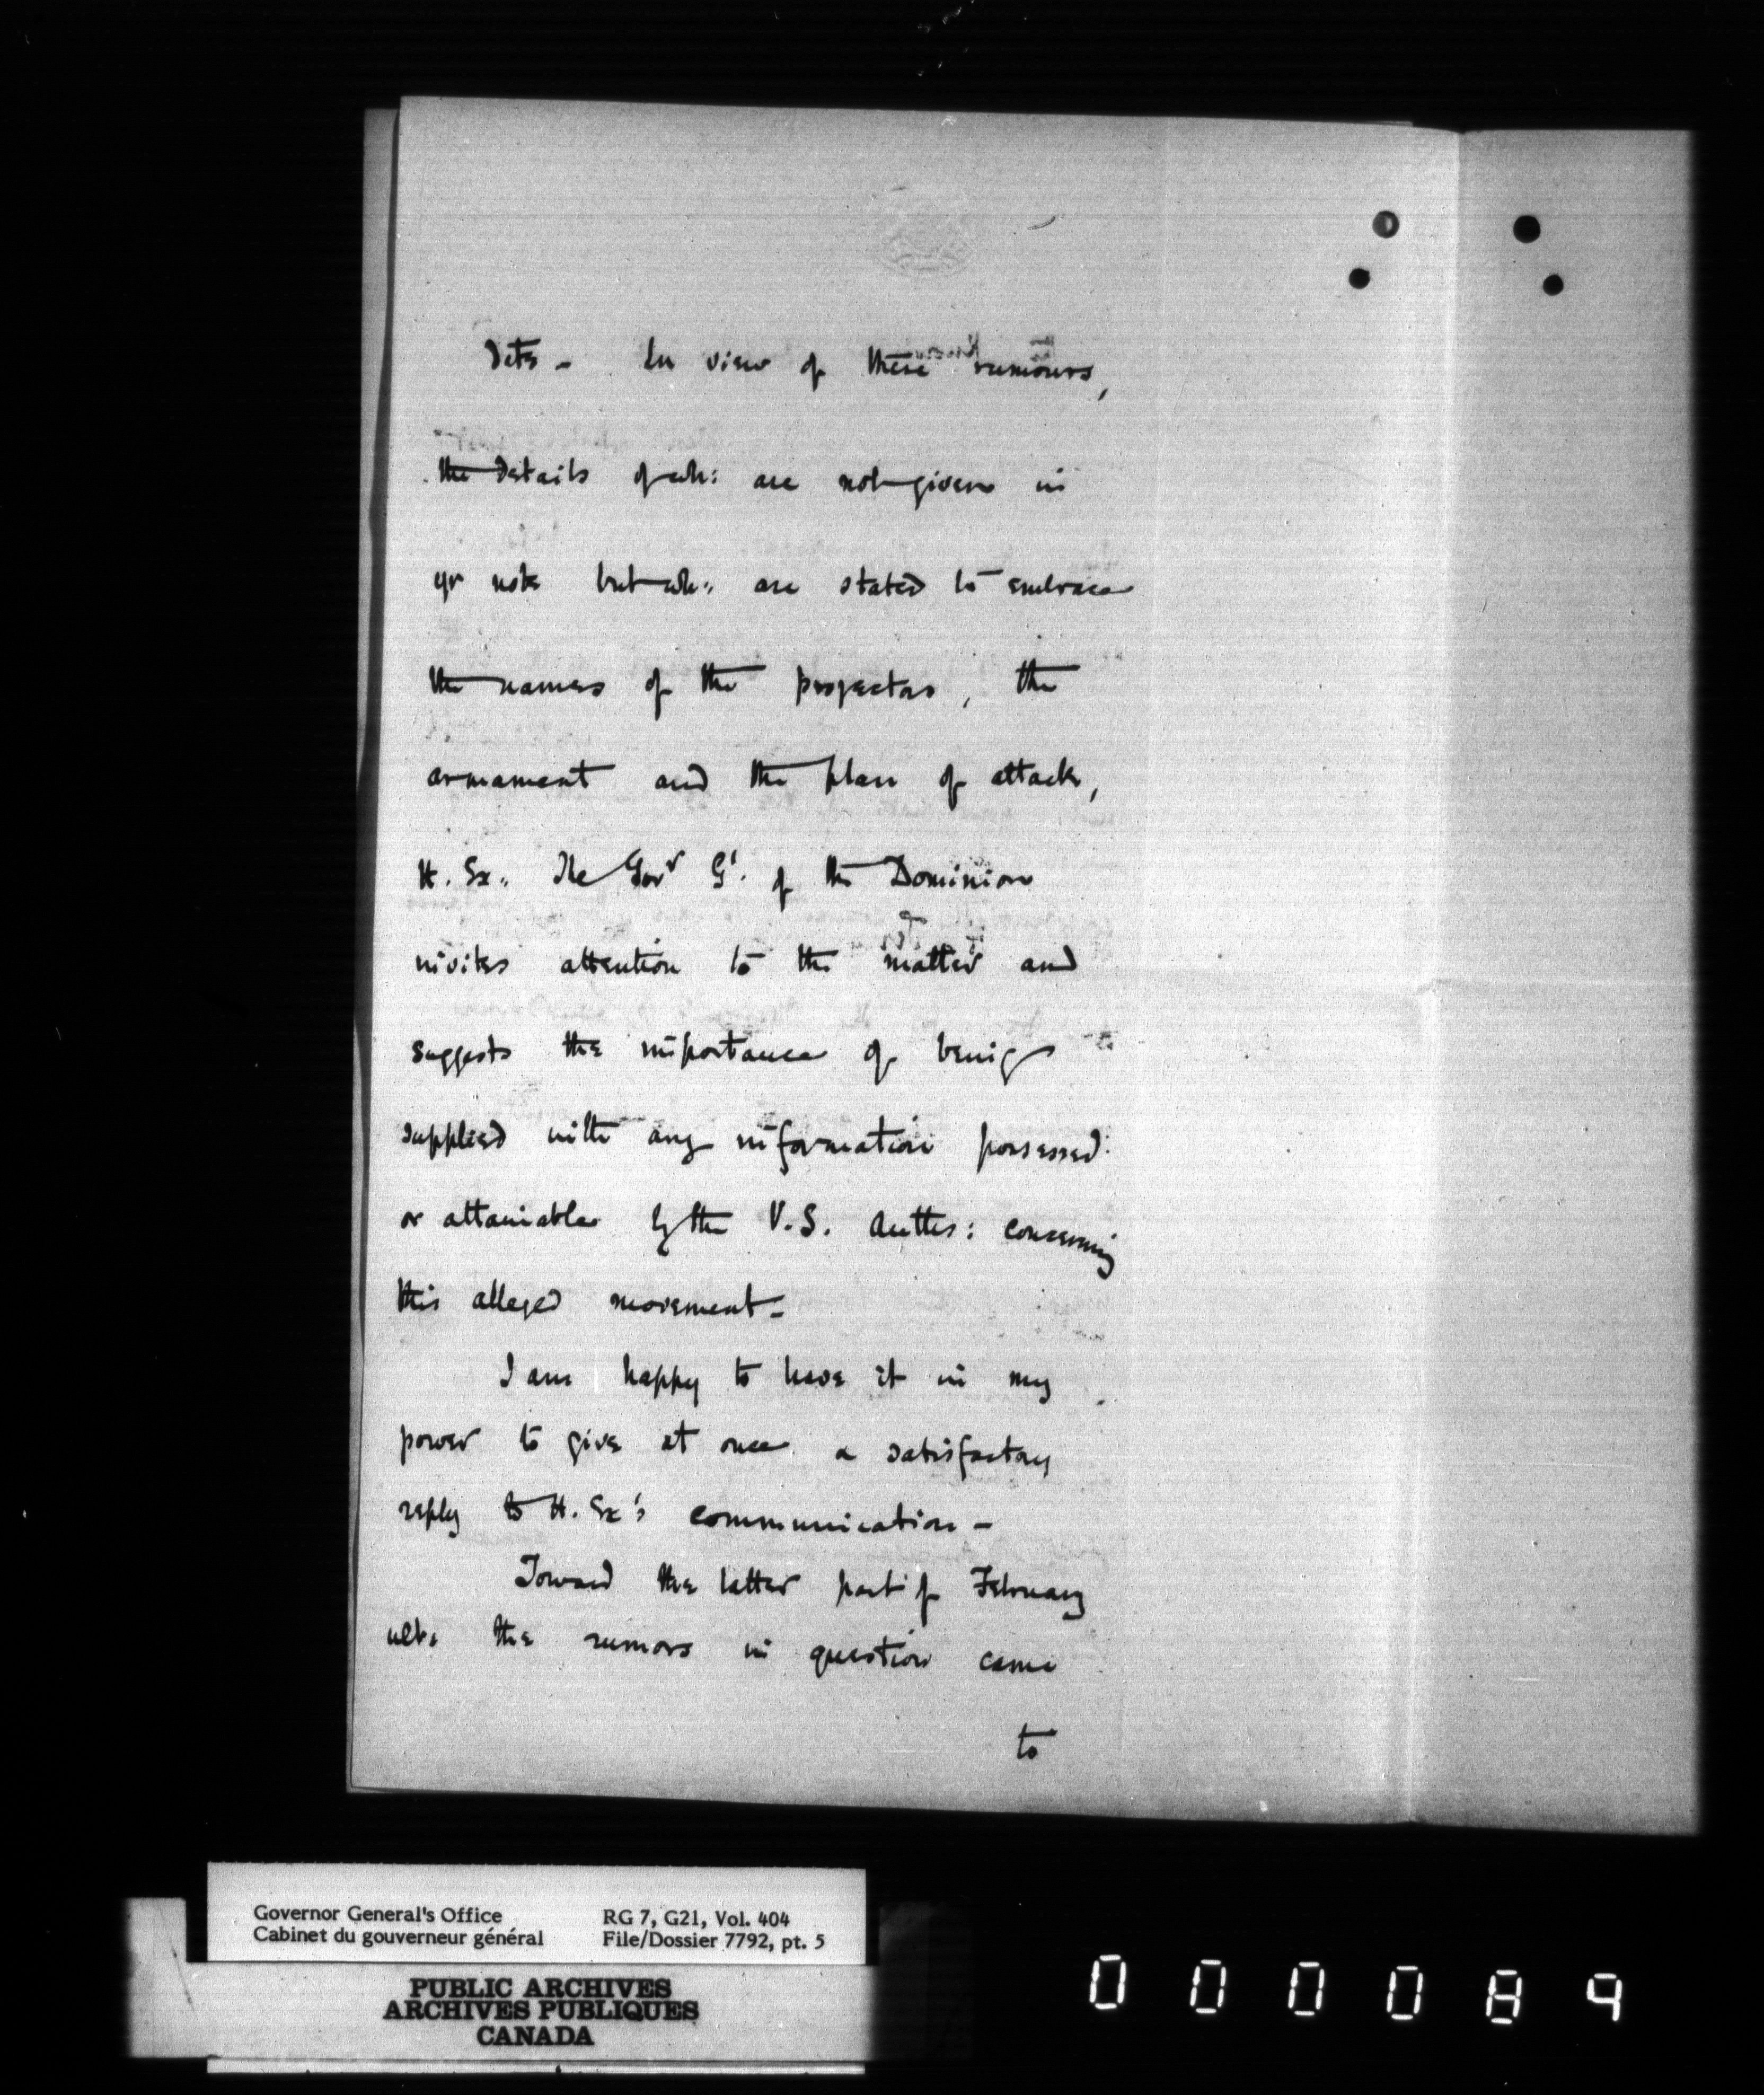 dets – In view of these rumours,
the details of wh: are not given in
yr note but wh: are stated to embrace
the names of the projectors, the
armament and the plan of attack,
H. Ex: The Govr Gl. of the Dominion
invites attention to the matter and
suggests the importance of being
supplied with any information possessed
or attainable by the U.S. Autts: concerning
this alleged movement –
I am happy to have it in my
power to give at once a satisfactory
reply to H. Ex's communication –
Toward the latter part of February
ult: the rumors in question came
to
Governor General's Office
Cabinet du gouverneur général
RG 7, G21, Vol. 404
File/Dossier 7792, pt. 5
PUBLIC ARCHIVES
ARCHIVES PUBLIQUES
CANADA
000089